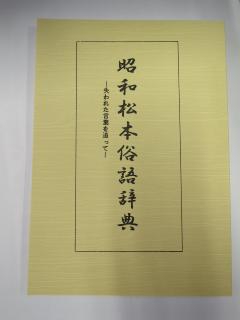 昭和松本俗語辞典
―失われた言葉を追って―